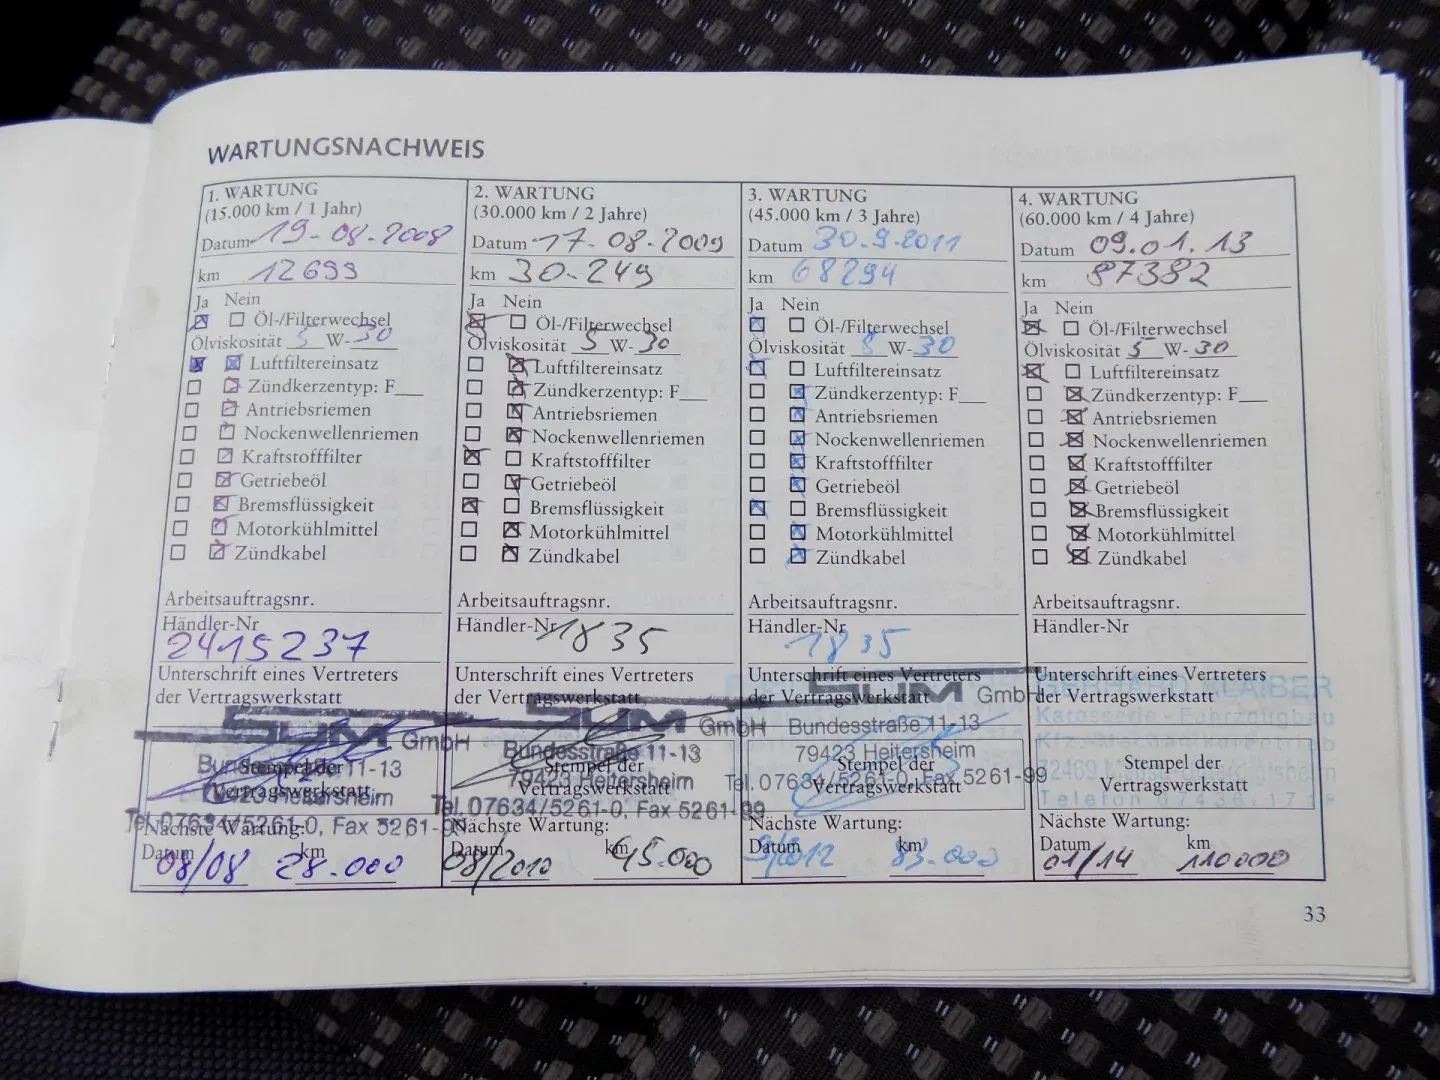 WARTUNGSNACHWEIS
1. WARTUNG
(15.000 km / 1 Jahr)
Datum 19-08-2008
km 12699
Ja Nein
Öl-/Filterwechsel
Ölviskosität 5 W-30
Luftfiltereinsatz
Zündkerzentyp: F___
Antriebsriemen
Nockenwellenriemen
Kraftstofffilter
Getriebeöl
Bremsflüssigkeit
Motorkühlmittel
Zündkabel
Arbeitsauftragsnr.
Händler-Nr
2415237
Unterschrift eines Vertreters
der Vertragswerkstatt
SUM GmbH
Bundesstraße 11-13
Stempel der
79423 Heitersheim
Vertragswerkstatt
Tel. 07634/5261-0, Fax 5261-99
Nächste Wartung:
Datum km
08/08 28.000
2. WARTUNG
(30.000 km / 2 Jahre)
Datum 17-08-2009
km 30-249
Ja Nein
Öl-/Filterwechsel
Ölviskosität 5 W-30
Luftfiltereinsatz
Zündkerzentyp: F___
Antriebsriemen
Nockenwellenriemen
Kraftstofffilter
Getriebeöl
Bremsflüssigkeit
Motorkühlmittel
Zündkabel
Arbeitsauftragsnr.
Händler-Nr 1835
Unterschrift eines Vertreters
der Vertragswerkstatt
SUM GmbH
Bundesstraße 11-13
Stempel der
79423 Heitersheim
Vertragswerkstatt
Tel. 07634/5261-0, Fax 5261-99
Nächste Wartung:
Datum km
08/2010 45.000
3. WARTUNG
(45.000 km / 3 Jahre)
Datum 30.9.2011
km 68294
Ja Nein
Öl-/Filterwechsel
Ölviskosität 5 W-30
Luftfiltereinsatz
Zündkerzentyp: F___
Antriebsriemen
Nockenwellenriemen
Kraftstofffilter
Getriebeöl
Bremsflüssigkeit
Motorkühlmittel
Zündkabel
Arbeitsauftragsnr.
Händler-Nr
1835
Unterschrift eines Vertreters
der Vertragswerkstatt
SUM GmbH
Bundesstraße 11-13
79423 Heitersheim
Stempel der
Tel. 07634/5261-0, Fax 5261-99
Vertragswerkstatt
Nächste Wartung:
Datum km
9/2012 83.000
4. WARTUNG
(60.000 km / 4 Jahre)
Datum 09.01.13
km 87382
Ja Nein
Öl-/Filterwechsel
Ölviskosität 5 W-30
Luftfiltereinsatz
Zündkerzentyp: F___
Antriebsriemen
Nockenwellenriemen
Kraftstofffilter
Getriebeöl
Bremsflüssigkeit
Motorkühlmittel
Zündkabel
Arbeitsauftragsnr.
Händler-Nr
Unterschrift eines Vertreters
der Vertragswerkstatt
KLAIBER
Karosserie - Fahrzeugbau
Stempel der
72469
Vertragswerkstatt
Telefon
Nächste Wartung:
Datum km
01/14 110000
33